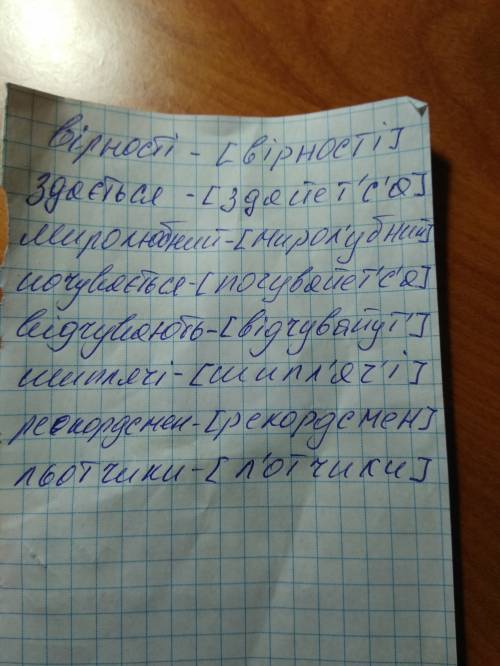 вірності - [вірності]
здається - [здайет'с'а]
миролюбний - [мирол'убний]
почувається - [почувайет'с'а]
відчувають - [відчувайут']
шиплячі - [шипл'яч'і]
рекордсмен - [рекордсмен]
льотчики - [л'отчики]